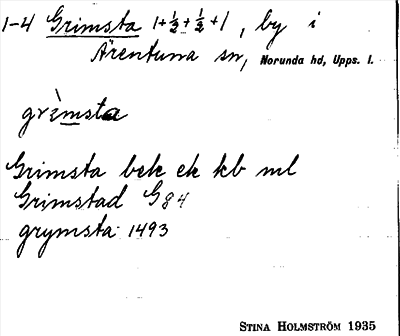 1-4 Grimsta 1+½+½+1, by i
Ärentuna sn, Norunda hd, Upps. l.
grìmsta
Grimsta bek ek kb ml
Grimstad G84
grymsta 1493
STINA HOLMSTRÖM 1935